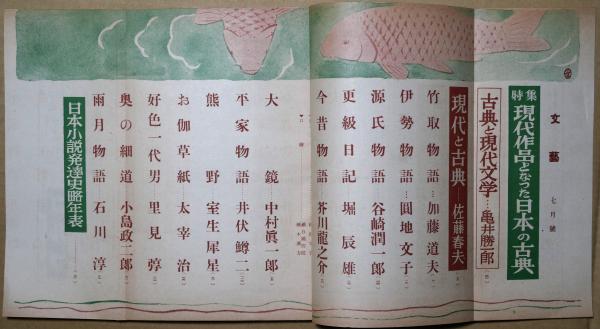 文藝 七月號
特集 現代作品となった日本の古典
古典と現代文学…亀井勝一郎
現代と古典——佐藤春夫
竹取物語…加藤道夫
伊勢物語…圓地文子
源氏物語 谷崎潤一郎
更級日記 堀辰雄
今昔物語 芥川龍之介
大鏡 中村眞一郎
平家物語 井伏鱒二
熊野 室生犀星
お伽草紙 太宰治
好色一代男 里見弴
奥の細道 小島政二郎
雨月物語 石川淳
日本小説発達史略年表